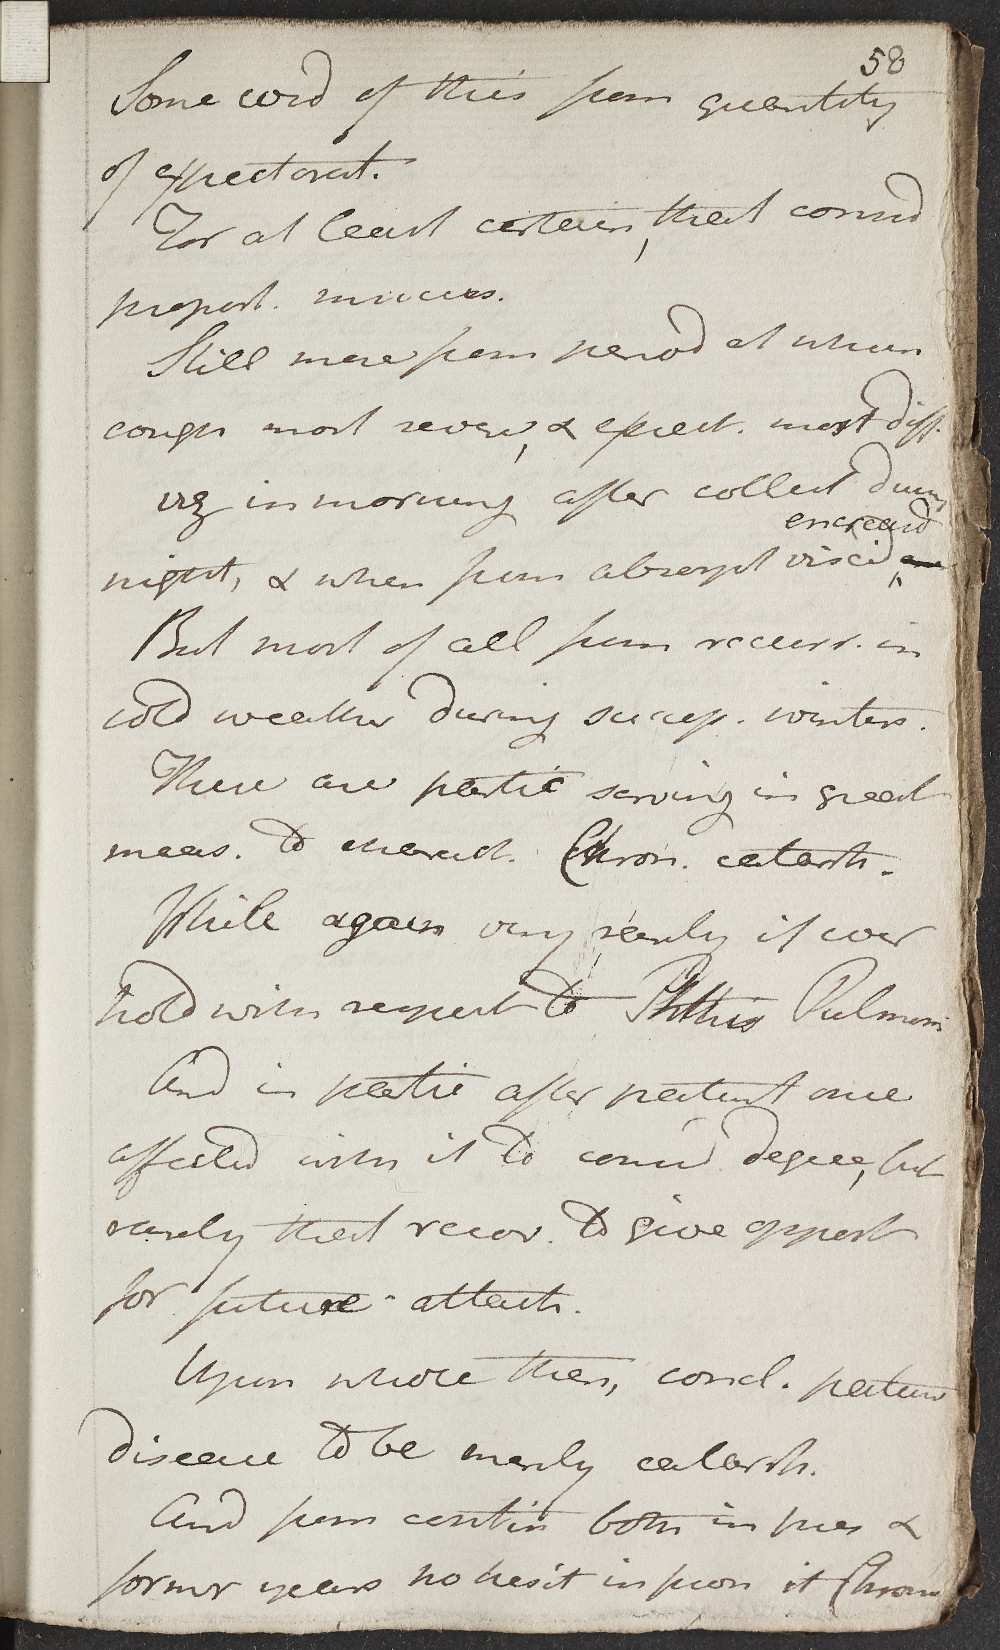 58
Some cond of this from quantity
of expectorat.
For at least certain, that consid
proport. mucus.
Still more from period at when
cough most severe, & expect. most diff.
viz in morning after collect during
encreasd
night, & when from absorpt viscid
But most of all from recurr. in
cold weather during success. winters.
These are partic serving in great
meas. to charact. Chron. catarrh.
While again very rarely if ever
hold with respect to Phthis Pulmon
And in partic after patient once
affected with it to consid degree, but
rarely that recov. to give opport
for future attack.
Upon whole then, concl. patients
disease to be merely catarrh.
And from contin both in pres &
former years no hesit in pron it Chron